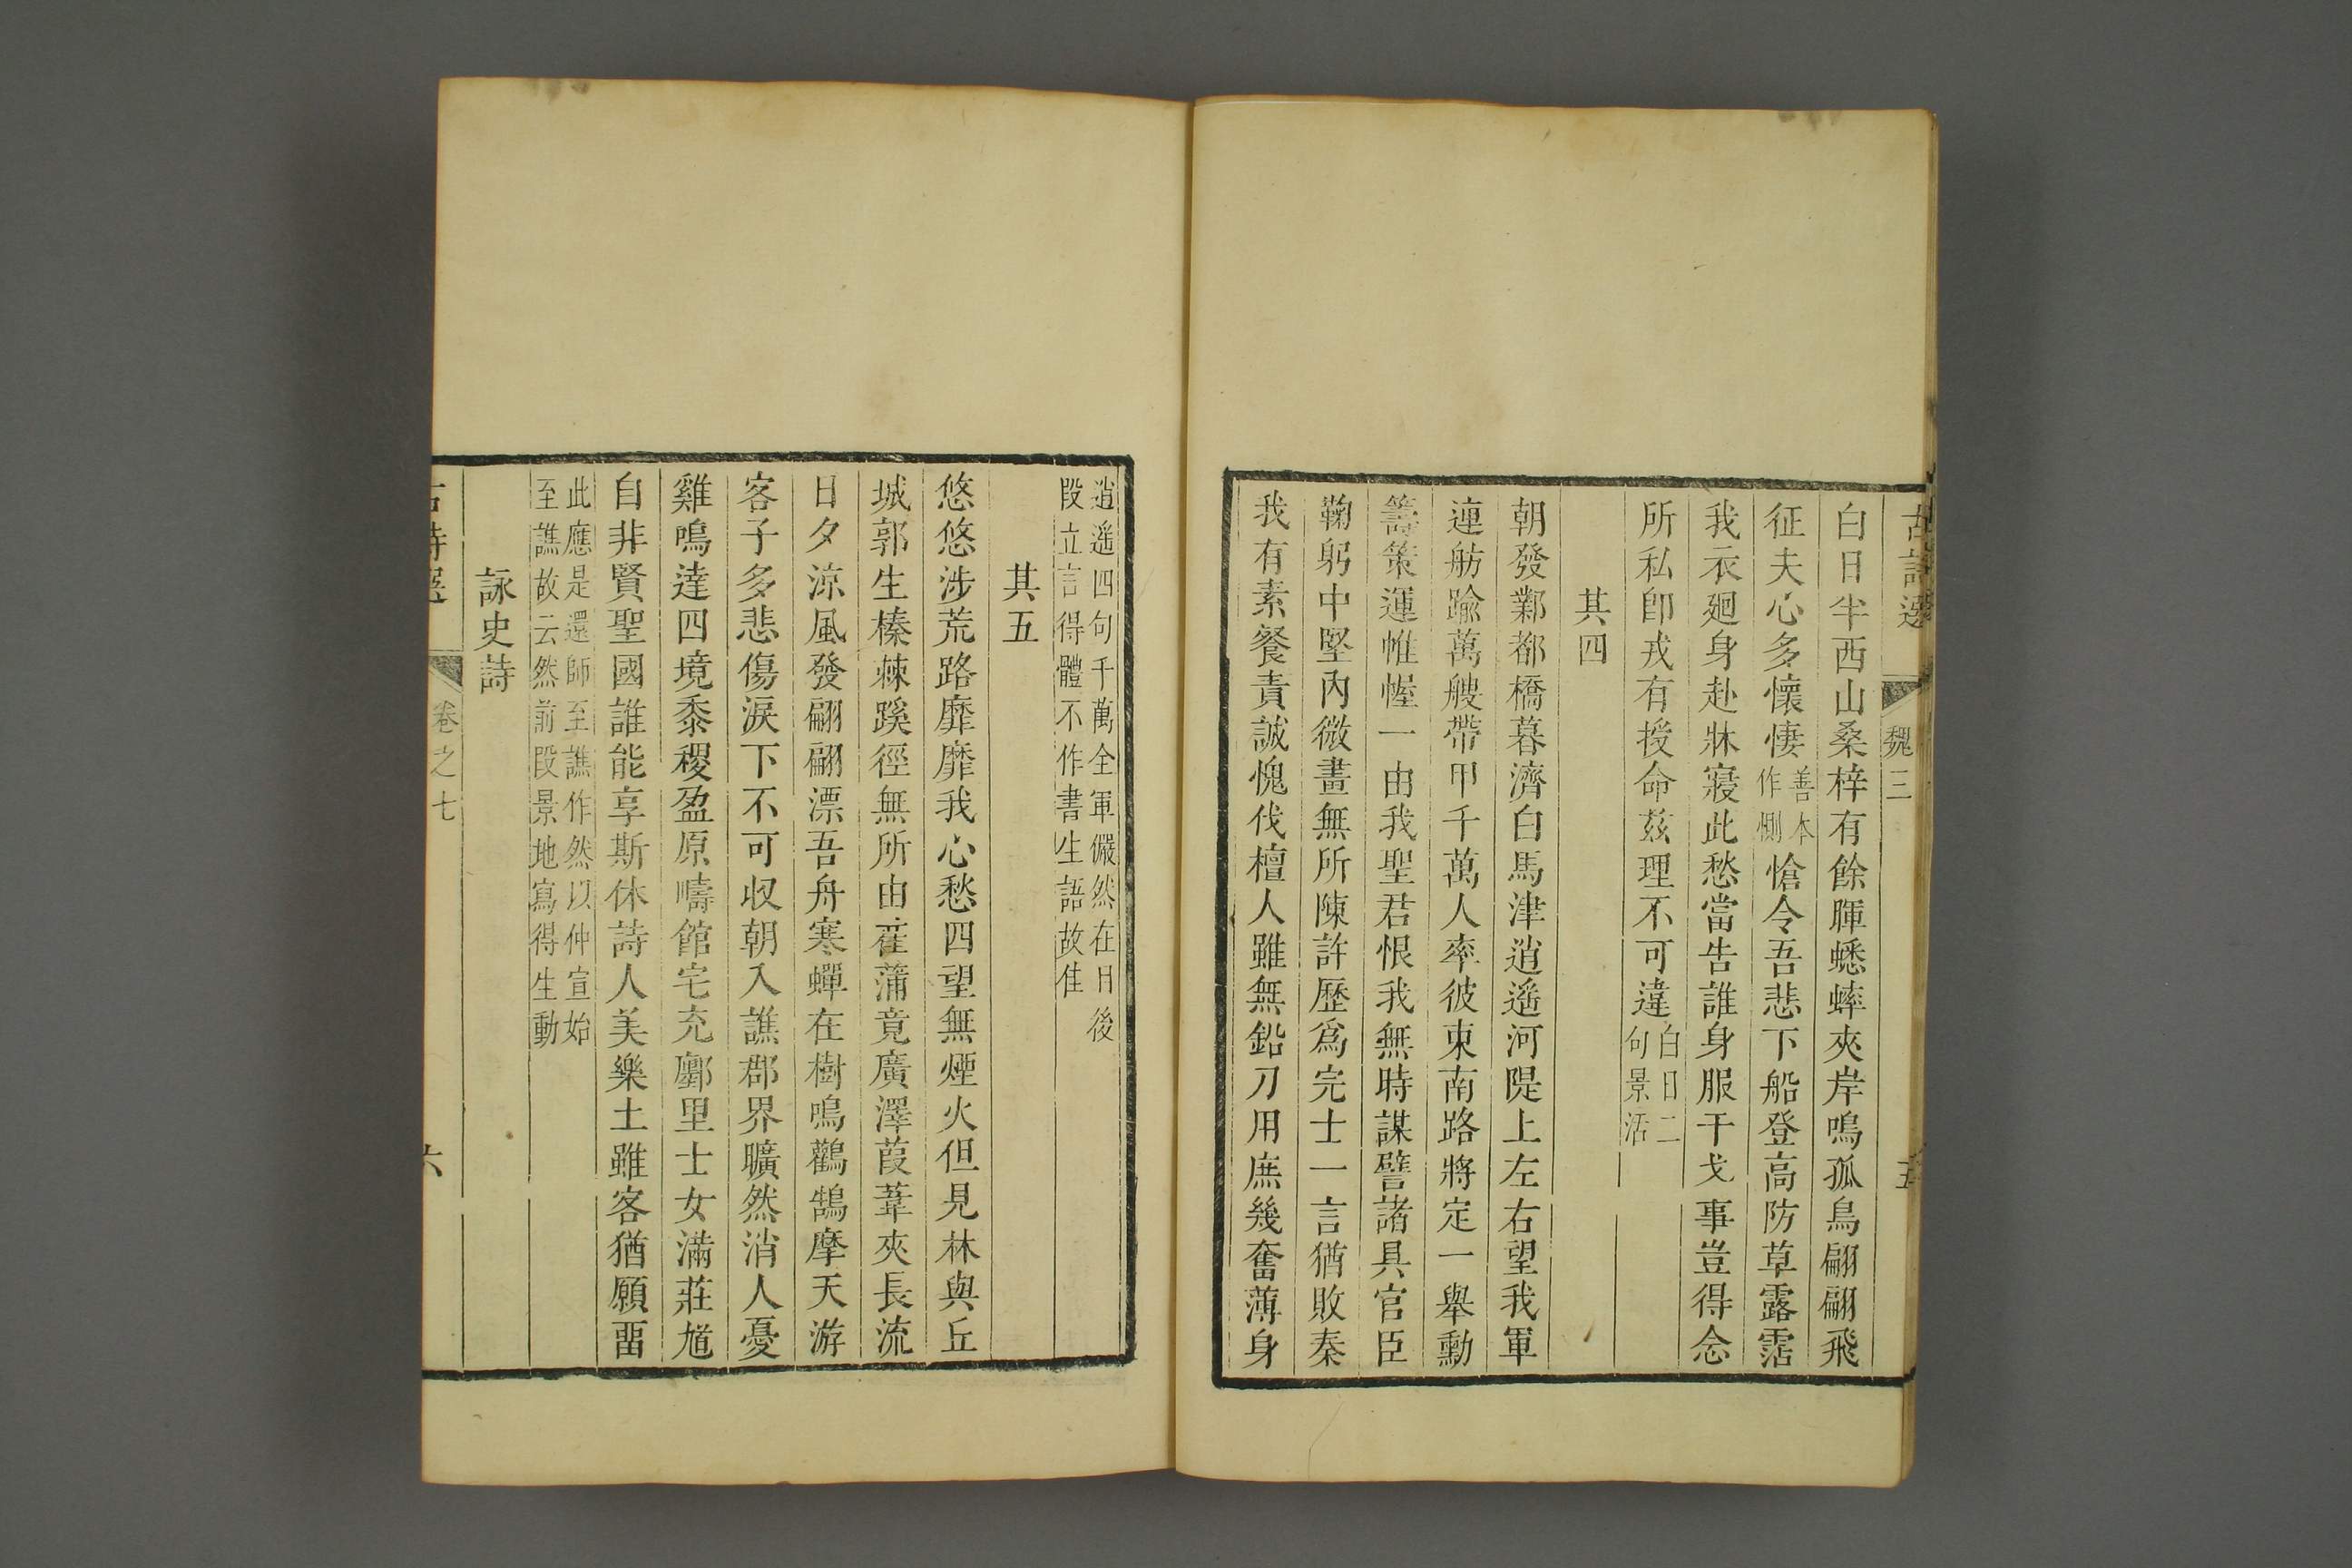 古詩選 魏三 五
白日半西山桑梓有餘暉蟋蟀夾岸鳴孤鳥翩翩飛
征夫心多懷悽善本作惻愴令吾悲下船登高防草露霑
我衣迴身赴牀寢此愁當告誰身服干戈事豈得念
所私卽戎有授命茲理不可違白日二句景活
其四
朝發鄴都橋暮濟白馬津逍遙河隄上左右望我軍
連舫踰萬艘帶甲千萬人率彼東南路將定一舉勳
籌策運帷幄一由我聖君恨我無時謀譬諸具官臣
鞠躬中堅內微畫無所陳許歷爲完士一言猶敗秦
我有素餐責誠愧伐檀人雖無鉛刀用庶幾奮薄身
逍遙四句千萬全軍儼然在目後
段立言得體不作書生語故佳
其五
悠悠涉荒路靡靡我心愁四望無煙火但見林與丘
城郭生榛棘蹊徑無所由雚蒲竟廣澤葭葦夾長流
日夕涼風發翩翩漂吾舟寒蟬在樹鳴鸛鵠摩天游
客子多悲傷淚下不可収朝入譙郡界曠然消人憂
雞鳴達四境黍稷盈原疇館宅充廛里士女滿莊馗
自非賢聖國誰能享斯休詩人美樂土雖客猶願畱
此應是還師至譙作然以仲宣始
至譙故云然前段景地寫得生動
詠史詩
古詩選 卷之七 六